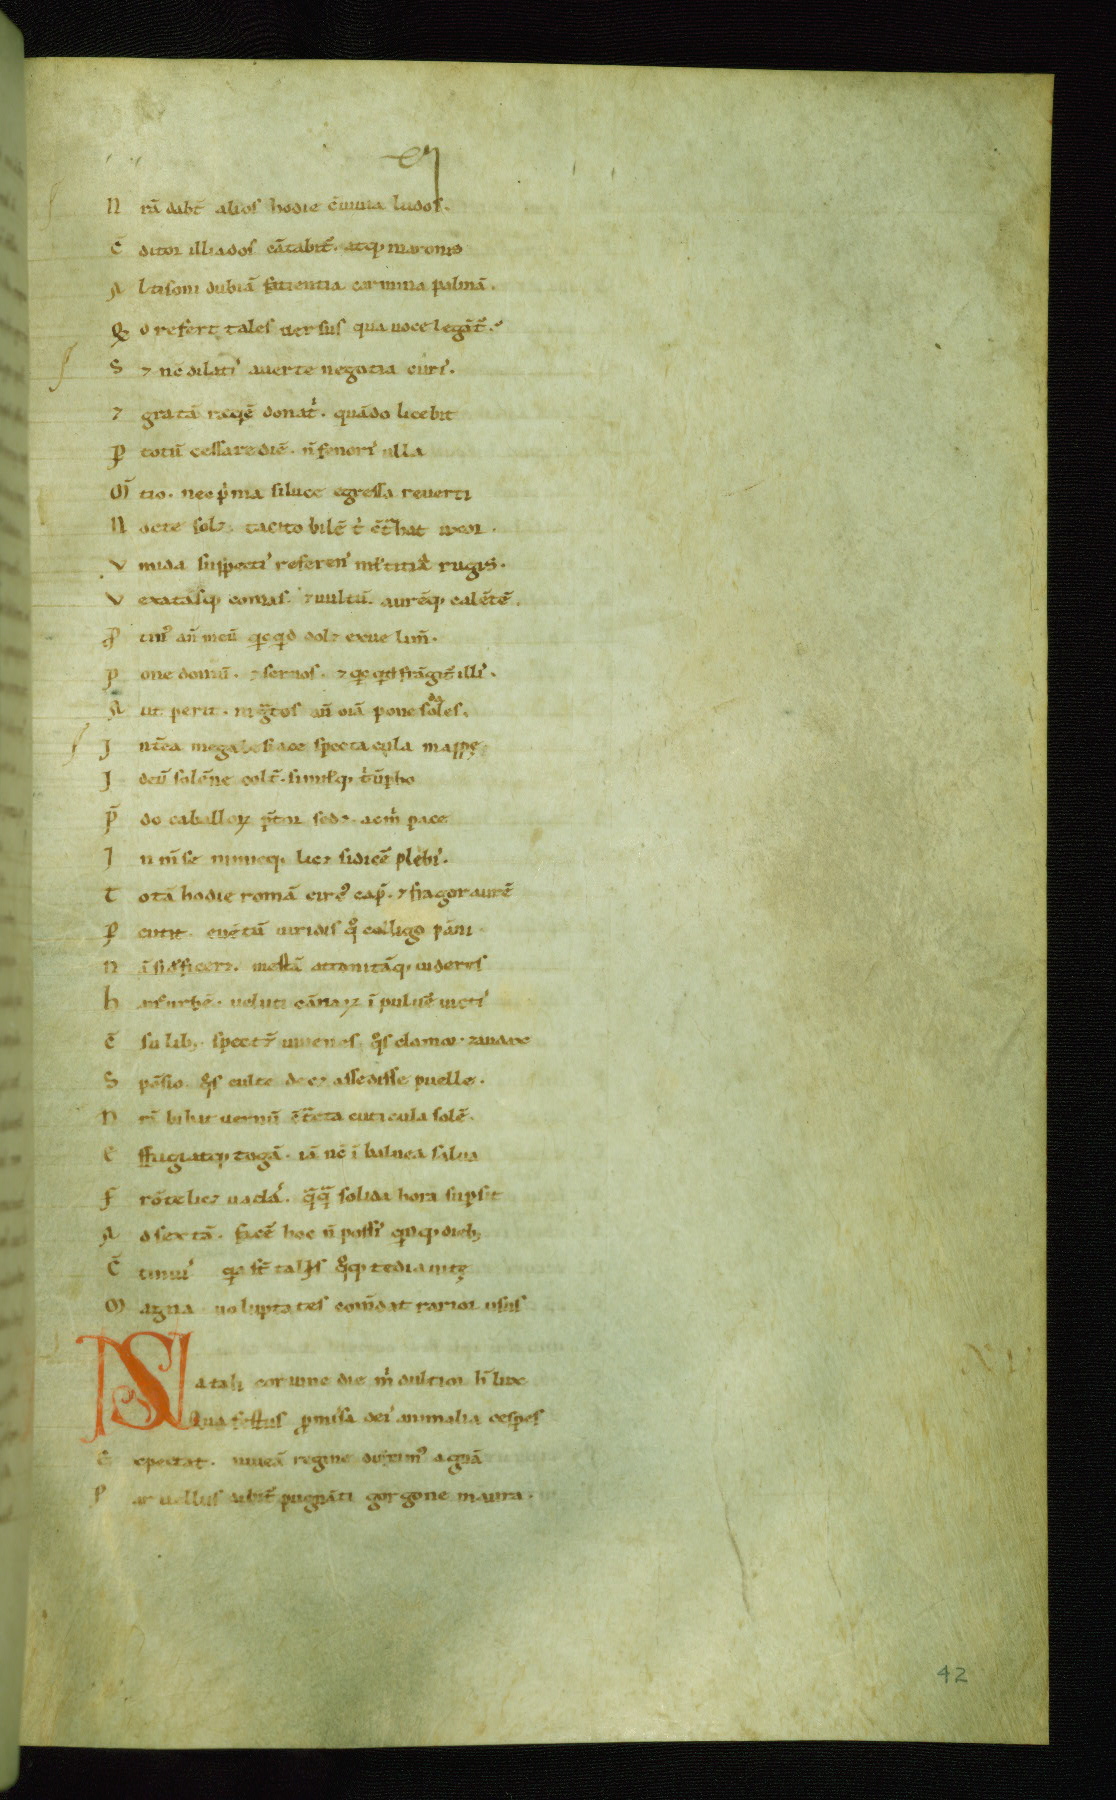 N rã dabt̃ alios hodie c̃uiuia ludos.
C̃ ditor illiados cãtabit̃. atq; maronis
A ltisoni dubiã faticntia carmina palmã.
Q d refert tales uersus qua uoce legãt̃.
S ⁊ nc̃ dilati' auerte negotia curi'.
⁊ gratã req̃e donat'. quãdo licebit
P totũ cessare diẽ. ñ fenori' ulla
M̃ tio. nec p'ma si luce egressa reuerti
N octe sol⁊. tacito bilẽ t' c̃t̃hat uxor.
V mida suspecti' referen' mt'titia rugis.
V exatasq; comas. ⁊uultũ. aurẽq; calẽtẽ.
P tin' añ meũ qicq̇d dol⁊ exue limñ.
P one domũ. ⁊ seruos. ⁊ qicq̇d frãgit̃ illi'.
A ut perit. ingt̃os añ oĩa pone sodales.
I ntẽa megalesiace spectacula mappę
I deũ solẽne colt̃. similq; t'ũpho
P̃ do caballoꝝ p̃tor sed⁊. acm' pace
I n m̃se nimieq; lic⁊ si dicẽ plebi'.
T otã hodie romã circ' cap̃. ⁊ fragor aurẽ
P cutit. euẽtũ uiridis q° colligo pãni.
N ã si d'ficer⁊. mestã attonitãq; uideres
H anc urbẽ. ueluti cãnaꝝ ĩ puluẽ uicti'
C̃ su lib;. spectt̃ iuuenes q̇s clamor. ⁊audax
S põsio. q̇s culte dec⁊ assedisse puelle.
N rã bibat uernũ c̃t̃cta cuticula solẽ.
E ffugiatq; togã. iã nc̃ ĩ balnea salua
F rõte lic⁊ uadas. q̃q̃ solida hora sup̃sit
A d sextã. facẽ hoc ñ possi' qinq; dieb;
C̃ tinui' qia st̃ talis q°q; tedia uitę
M agna uoluptates com̃dat rarior usus
NAtali coruine die m' dultior h̃ lux
Qua festus p̃missa dei' animalia cespes
E xpectat. niueã regine ducim' agnã
P ar uellus dabit̃ pugnãti gorgone maura.
42